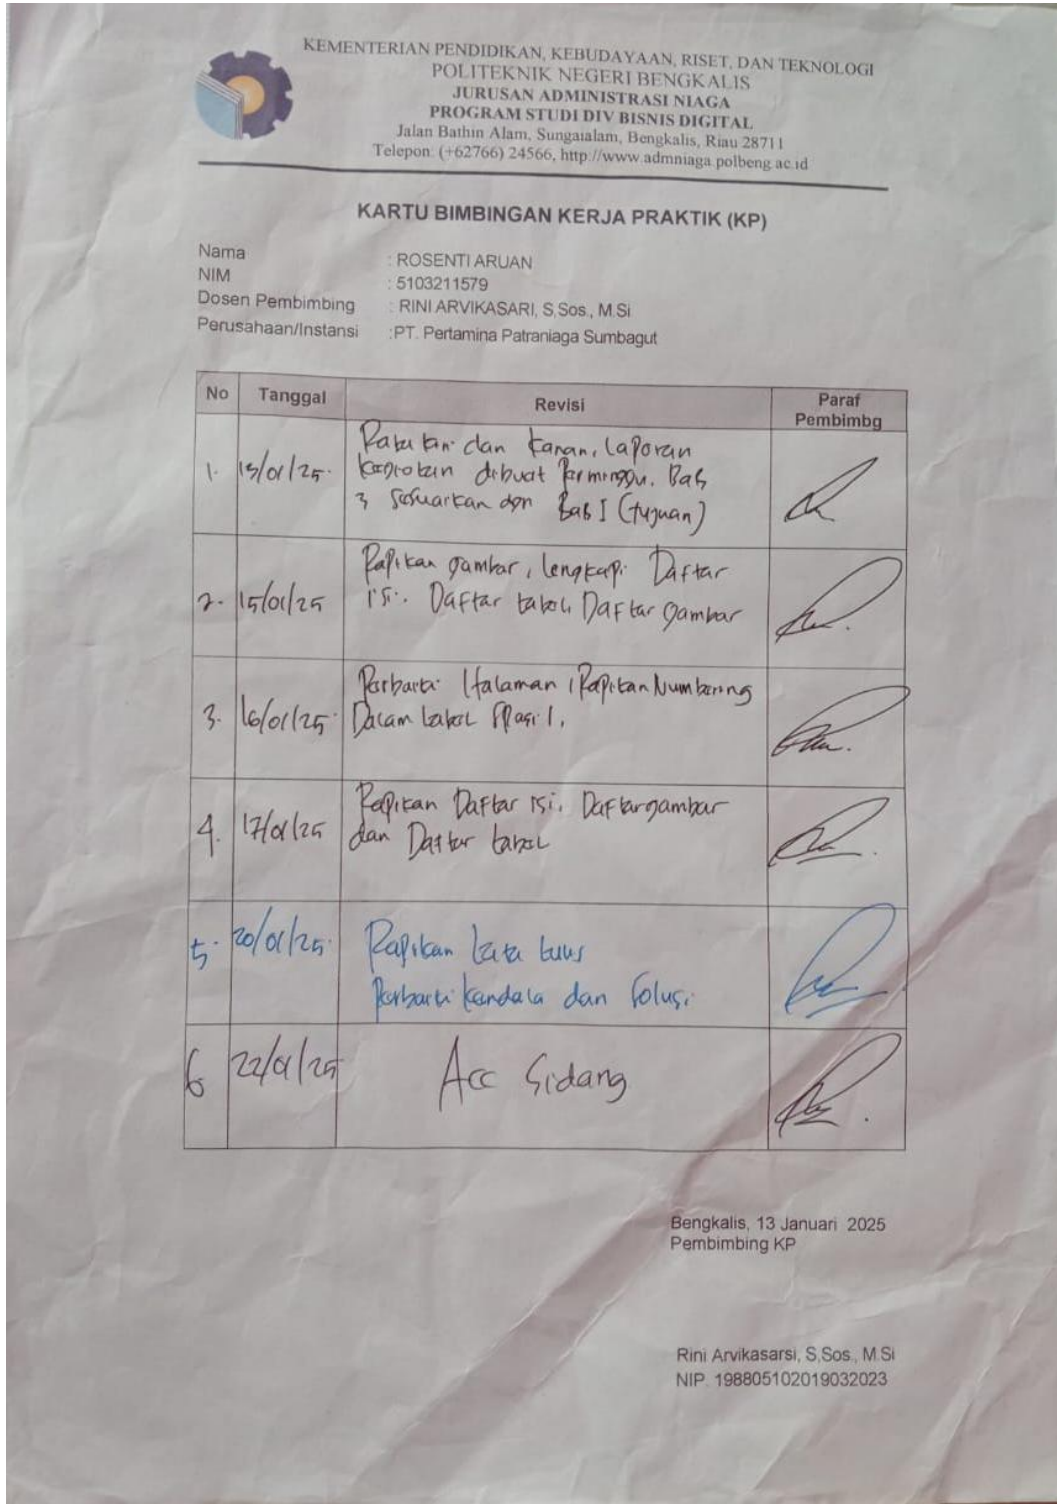 KEMENTERIAN PENDIDIKAN, KEBUDAYAAN, RISET, DAN TEKNOLOGI
POLITEKNIK NEGERI BENGKALIS
JURUSAN ADMINISTRASI NIAGA
PROGRAM STUDI DIV BISNIS DIGITAL
Jalan Bathin Alam, Sungaialam, Bengkalis, Riau 28711
Telepon: (+62766) 24566, http://www.admniaga.polbeng.ac.id
KARTU BIMBINGAN KERJA PRAKTIK (KP)
Nama : ROSENTI ARUAN
NIM : 5103211579
Dosen Pembimbing : RINI ARVIKASARI, S,Sos., M.Si
Perusahaan/Instansi :PT. Pertamina Patraniaga Sumbagut
No Tanggal Revisi Paraf
Pembimbg
dan kanan, laporan
1. /01/25. dibuat perminggu. Bab
3 sesuaikan dgn Bab I (tujuan)
Rapikan gambar, lengkapi Daftar
2. 15/01/25 isi. Daftar tabel, Daftar gambar
Perbaiki Halaman, Rapikan Numbering
3. 16/01/25. Dalam tabel
Rapikan Daftar isi. Daftar gambar
4. 17/01/25 dan Daftar tabel
5. 20/01/25. Rapikan tata tulis
Perbaiki kendala dan Solusi
6 22/01/25 Acc Sidang
Bengkalis, 13 Januari 2025
Pembimbing KP
Rini Arvikasarsi, S,Sos., M.Si
NIP. 198805102019032023